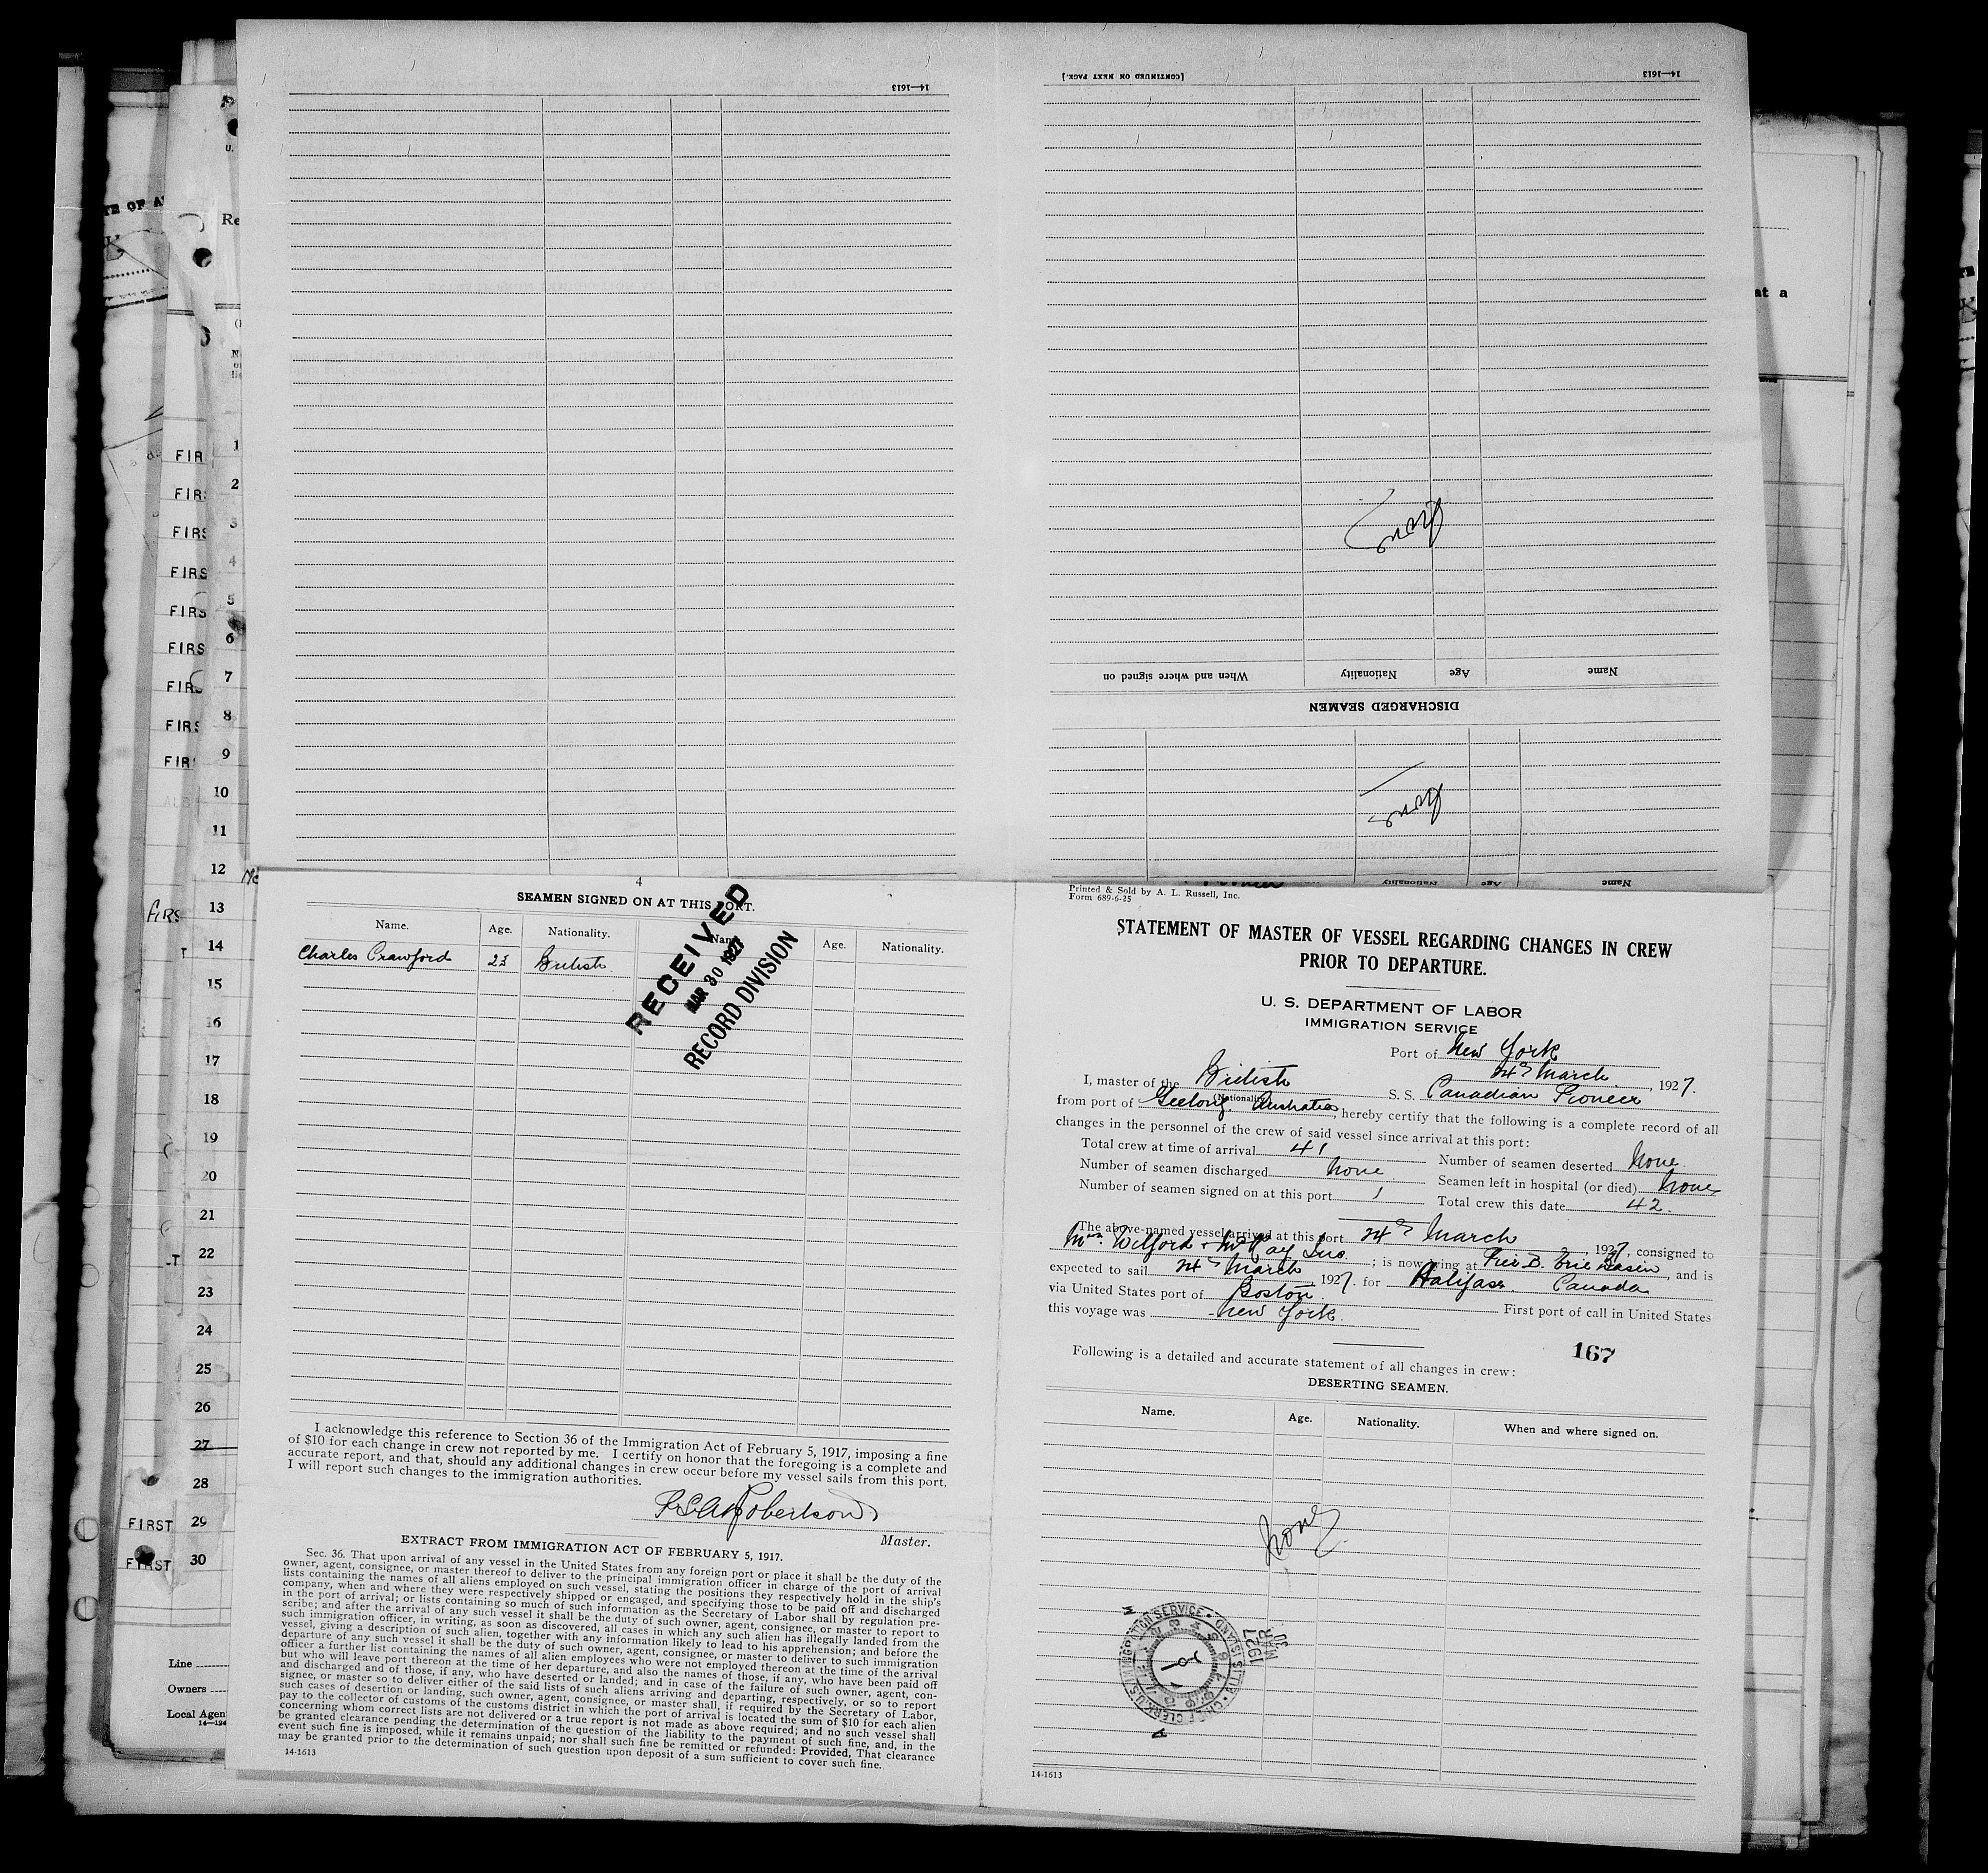 14—1613
[CONTINUED ON NEXT PAGE.]
14—1613
None
Name
Age
Nationality
When and where signed on
DISCHARGED SEAMEN
None
Name
Age
Nationality
TE OF A
U.
Re
FIR 1
FIR 2
FIRS 3
FIRS 4
FIRS 5
FIRS 6
FIR 7
FIRS 8
FIR 9
10
11
12
FIRS 13
14
15
16
17
18
19
20
21
22
23
24
25
26
27
28
FIRST 29
FIRST 30
Line
Owners
Local Agen
at a
4
SEAMEN SIGNED ON AT THIS PORT.
Name. Age. Nationality. Name. Age. Nationality.
Charles Crawford 25 British
RECEIVED
MAR 30 1927
RECORD DIVISION
I acknowledge this reference to Section 36 of the Immigration Act of February 5, 1917, imposing a fine
of $10 for each change in crew not reported by me. I certify on honor that the foregoing is a complete and
accurate report, and that, should any additional changes in crew occur before my vessel sails from this port,
I will report such changes to the immigration authorities.
Robertson
Master.
EXTRACT FROM IMMIGRATION ACT OF FEBRUARY 5, 1917.
Sec. 36. That upon arrival of any vessel in the United States from any foreign port or place it shall be the duty of the
owner, agent, consignee, or master thereof to deliver to the principal immigration officer in charge of the port of arrival
lists containing the names of all aliens employed on such vessel, stating the positions they respectively hold in the ship's
company, when and where they were respectively shipped or engaged, and specifying those to be paid off and discharged
in the port of arrival; or lists containing so much of such information as the Secretary of Labor shall by regulation pre-
scribe; and after the arrival of any such vessel it shall be the duty of such owner, agent, consignee, or master to report to
such immigration officer, in writing, as soon as discovered, all cases in which any such alien has illegally landed from the
vessel, giving a description of such alien, together with any information likely to lead to his apprehension; and before the
departure of any such vessel it shall be the duty of such owner, agent, consignee, or master to deliver to such immigration
officer a further list containing the names of all alien employees who were not employed thereon at the time of the arrival
but who will leave port thereon at the time of her departure, and also the names of those, if any, who have been paid off
and discharged and of those, if any, who have deserted or landed; and in case of the failure of such owner, agent, con-
signee, or master so to deliver either of the said lists of such aliens arriving and departing, respectively, or so to report
such cases of desertion or landing, such owner, agent, consignee, or master shall, if required by the Secretary of Labor,
pay to the collector of customs of the customs district in which the port of arrival is located the sum of $10 for each alien
concerning whom correct lists are not delivered or a true report is not made as above required; and no such vessel shall
be granted clearance pending the determination of the question of the liability to the payment of such fine, and, in the
event such fine is imposed, while it remains unpaid; nor shall such fine be remitted or refunded: Provided, That clearance
may be granted prior to the determination of such question upon deposit of a sum sufficient to cover such fine.
14-1613
Printed & Sold by A. L. Russell, Inc.
Form 689-6-25
STATEMENT OF MASTER OF VESSEL REGARDING CHANGES IN CREW
PRIOR TO DEPARTURE.
U. S. DEPARTMENT OF LABOR
IMMIGRATION SERVICE
Port of New York
24th March, 1927.
I, master of the British S. S. Canadian Pioneer
(Nationality)
from port of Geelong. Australia, hereby certify that the following is a complete record of all
changes in the personnel of the crew of said vessel since arrival at this port:
Total crew at time of arrival 41 Number of seamen deserted None
Number of seamen discharged None Seamen left in hospital (or died) None
Number of seamen signed on at this port 1 Total crew this date 42.
The above-named vessel arrived at this port 24th March, 1927, consigned to
Mssrs. Wilford & McKay Inc.; is now lying at Pier B. Erie Basin, and is
expected to sail 24th March, 1927. for Halifax. Canada
via United States port of Boston.
First port of call in United States
this voyage was New York.
167
Following is a detailed and accurate statement of all changes in crew:
DESERTING SEAMEN.
Name. Age. Nationality. When and where signed on.
None
U.S. IMMIGRATION SERVICE
CHIEF CLERK
MAR 30 1927
14-1613